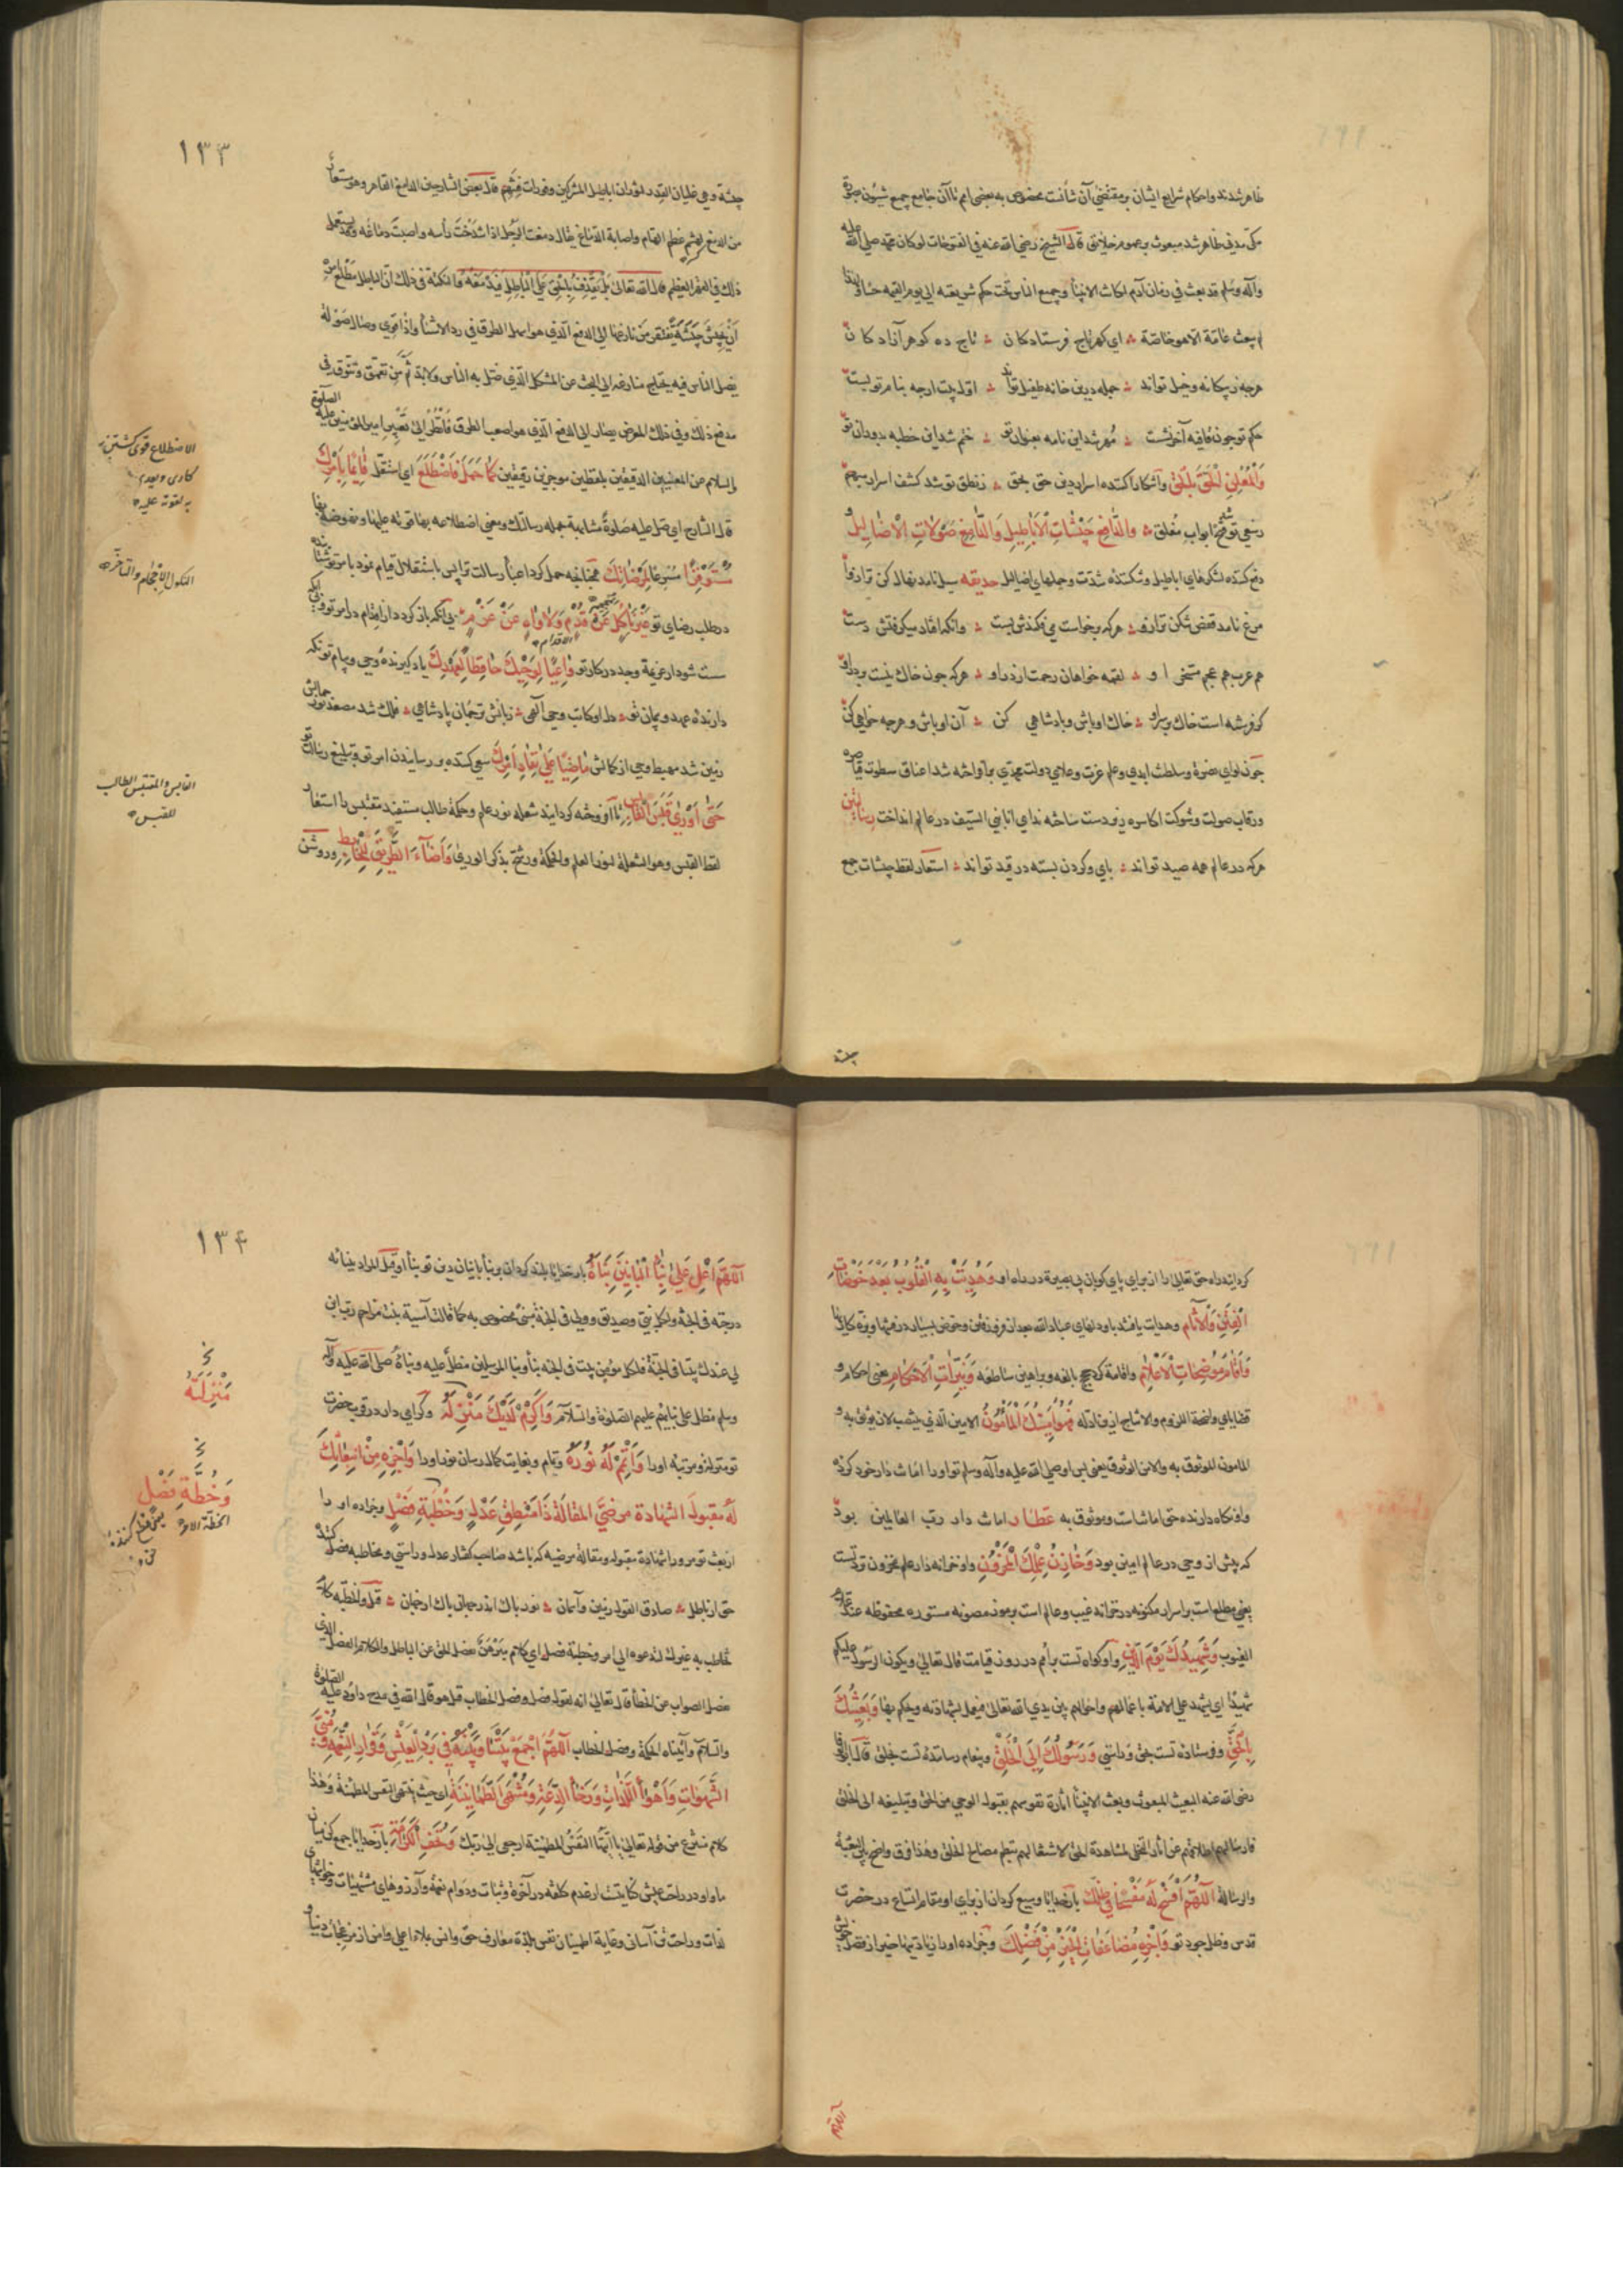 ظاهر شدند و احکام شرایع ایشان بر مقتضی آن شأنست مخصوص به بعضی امم تا آن جامع جمیع شئون
مکی مدنی ظاهر شد مبعوث بر عموم خلایق قال الشیخ رضی الله عنه فی الفتوحات لو کان محمد صلی الله علیه
وآله وسلم قد بعث فی زمان آدم لکانت الانبیا وجمیع الناس تحت حکم شریعته الی یوم القیمة
لم یبعث عامة الا هو خاصة ای کهر تاج فرستادکان تاج ده کوهر آزادکان
هرجه ز بیکانه وخیل تواند جمله درین خانه طفیل تواند اول بیت ارجه بنام تو بست
حکم تو جون قافیه آخر نشست مهر شد این نامه بعنوان تو ختم شد این خطبه بدوران تو
وَالْمُعْلِنِ الْحَقَّ بِالْحَقِّ وآشکارا کننده اسرار دین حق بحق ز نطق تو شد کشف اسرار مبهم
ز سعی تو فتح ابواب مغلق وَالدَّافِعِ جَیْشَاتِ الْأَبَاطِیلِ وَالدَّامِغِ صَوْلَاتِ الْأَضَالِیلِ
دفع کننده لشکرهای اباطیل وشکننده شدت وحملهای اضالیل حدیقه سیل نامد نهال کن ترازو
مرغ نامد قفص شکن ترازو هرکه برخواست می فکندش پست وانکه افتاد میکرفتش دست
هم عرب هم عجم مسخر او لقمه خواهان رحمت از در او هرکه جون خاک نیست بر در او
کر فرشته است خاک بر سر او خاک او باش وبادشاهی کن آن او باش وهرجه خواهی کن
جون لوای نصرة وسلطنت ابدی وعلم عزت وعلای دولت محمدی برافراخته شد اعناق سطوت قیاصره
ورقاب صولت وشوکت اکاسره زیر دست ساخته ندای انا نبی السیف در عالم انداخت
هرکه در عالم همه صید تواند بای وکردن بسته در قید تواند استعار لفظ جیشات جمع
جیشة
۱۳۳
جیشة وهی غلیان القدر لثوران اباطیل المشرکین وفورات فتنهم قال بعض الشارحین الدامغ القاهر وهو مستعار
من الدمغ لهشم عظم الهام واصابة الدماغ یقال دمغت الرجل اذا شدخت رأسه واصبت دماغه وقد یستعمل
ذلک فی القهر العظیم قال الله تعالی بَلْ نَقْذِفُ بِالْحَقِّ عَلَی الْبَاطِلِ فَیَدْمَغُهُ والنکتة فی ذلک ان الباطل
یضل الناس فیه یحتاج منازعه الی البحث عن المشکل الذی ضل به الناس ولا بد ثم من تعمق
مدفع ذلک وفی ذلک الغرض یصار الی الدفع الذی هو اصعب الطرق فانظر الی تعبیر امیر المؤمنین علیه الصلوة
والسلام عن المعنیین الدقیقین بلفظین موجزین رقیقین کَمَا حُمِّلَ فَاضْطَلَعَ ای استقل قَائِمًا بِأَمْرِکَ
قال الشارح ای صل علیه صلوة مشابهة حمله رسالتک ومعنی اضطلاعه بها قوته علیها ونهوضه بها
مُسْتَوْفِزًا فِی مَرْضَاتِکَ همجنانجه حمل کرد اعباء رسالت ترا پس باستقلال قیام نمود بامر تو
در طلب رضای تو غَیْرَ نَاکِلٍ عَنْ قُدُمٍ وَلَا وَاهٍ عَنْ عَزْمٍ بی آنکه باز کردد از اقدام در امر تو
سست شود از عزیمة وجد در کار تو وَاعِیًا لِوَحْیِکَ حَافِظًا لِعَهْدِکَ یاد کیرنده وحی وپیام تو
دارنده عهد وپیمان تو دل او کاتب وحی آلهی زبانش ترجمان پادشاهی فلک شد مصعد نور
زمین شد مهبط وحی از کمالش مَاضِیًا عَلَی نَفَاذِ أَمْرِکَ سعی کننده بر رسانیدن امر تو وتبلیغ رسالت تو
حَتَّی أَوْرَی قَبَسَ الْقَابِسِ تا آفروخته کردانید شعله نور علم وحکمة طالب مستفید مقتبس را استعار
لفظ القبس وهو الشعلة لنور العلم والحکمة ورشح بذکر الوری وَأَضَاءَ الطَّرِیقَ لِلْخَابِطِ وروشن
الاضطلاع قوی کشتن بر
کاری
یه لقوته علیه
النکول الاحجام والتأخر
القابس والمقتبس الطالب
للقبس
کردانید راه حق تعالی را از برای پای کوبان بی بصیرة در راه او وَهُدِیَتْ بِهِ الْقُلُوبُ بَعْدَ خَوْضَاتِ
الْفِتَنِ وَالْآثَامِ وهدایت یافتند باو دلهای عباد الله بعد از فرو رفتن وخوض بسیار در فتنها وبزه کاریها
وَأَقَامَ مُوضِحَاتِ الْأَعْلَامِ واقامة کرد حجج بالغه وبراهین ساطعه وَنَیِّرَاتِ الْأَحْکَامِ یعنی احکام و
قضایای واضحة اللزوم والانتاج از مواد ادله فَهُوَ أَمِینُکَ الْمَأْمُونُ الامین الذی منتصب لان یوثق به و
المأمون الموثوق به ولامن الوثوق یعنی بس او صلی الله علیه وآله وسلم تو او را امانت دار خود کرد
واو نکاه دارنده حق امانتست وموثوق به عطار امانت دار رب العالمین بود
که پیش از وحی در عالم امین بود وَخَازِنُ عِلْمِکَ الْمَخْزُونِ واو خزانه دار علم مخزون تو است
یعنی مطلع است بر اسرار مکنونه در خزانه غیب وعالم است برموز مصونه مستوره محفوظه عند علام
الغیوب وَشَهِیدُکَ یَوْمَ الدِّینِ واو کواه تست بر امم در روز قیامت قال تعالی ویکون الرسول علیکم
شهیدا ای یشهد علی الامة باعمالهم واحوالهم بین یدی الله تعالی فیعمل بشهادته ویحکم بها وَبَعِیثُکَ
بِالْحَقِّ وفرستاده تست بحق وراستی وَرَسُولُکَ إِلَی الْخَلْقِ وپیغام رساننده تست بخلق قال
رضی الله عنه البعیث المبعوث وبعث الانبیا اثارة نفوسهم بقبول الوحی من الحق وتبلیغه الی الخلق
وارساله اللَّهُمَّ افْسَحْ لَهُ مَفْسَحًا فِی ظِلِّکَ بارخدایا وسیع کردان از برای او مقام اتساع در حضرت
قدس وظل جود تو وَاجْزِهِ مُضَاعَفَاتِ الْخَیْرِ مِنْ فَضْلِکَ وجزا ده او را زیادتیها خیر از فضل خویش
اللهم
۱۳۴
اللَّهُمَّ أَعْلِ عَلَی بِنَاءِ الْبَانِینَ بِنَاءَهُ بارخدایا بلند کردان بر بنا بانیان دین تو بنا او قیل المراد ببنائه
درجته فی الجنة ولکل نبی وصدیق وولی فی الجنة مبنی مخصوص به کما قالت آسیة بنت مزاحم رب ابن
لی عندک بیتا فی الجنة فلکل مؤمن بیت فی الجنة بنا وبنا المرسلین مطل علیه وبناؤه صلی الله علیه وآله
وسلم مطل علی بنائهم علیهم الصلوة والسلام وَأَکْرِمْ لَدَیْکَ مَنْزِلَهُ وکرامی دار در قرب حضرت
تو منزل ومرتبه او را وَأَتْمِمْ لَهُ نُورَهُ وتمام وبغایت کمال رسان نور او را وَاجْزِهِ مِنِ ابْتِعَاثِکَ
لَهُ مَقْبُولَ الشَّهَادَةِ مَرْضِیَّ الْمَقَالَةِ ذَا مَنْطِقٍ عَدْلٍ وَخُطْبَةٍ فَصْلٍ وجزا ده او را
از بعث تو مر ورا شهادة مقبوله ومقالة مرضیه که باشد صاحب کفتار عدل وراستی ومخاطبه فصل کننده
حق از باطل صادق القول زمین وآسمان نور باک اندر جهانی باک از جهان قوله والخطبه کلام
یفصل الصواب عن الخطأ قال تعالی انه لقول فصل وفصل الخطاب قیل هو قال الله فی مدح داود علیه الصلوة
والسلام وآتیناه الحکمة وفصل الخطاب اللَّهُمَّ اجْمَعْ بَیْنَنَا وَبَیْنَهُ فِی بَرْدِ الْعَیْشِ وَقَرَارِ النِّعْمَةِ وَمُنَی
الشَّهَوَاتِ وَأَهْوَاءِ اللَّذَّاتِ وَرَخَاءِ الدَّعَةِ وَمُنْتَهَی الطُّمَأْنِینَةِ ای حیث تنتهی النفس المطمئنة وهذا
کلام منتزع من قوله تعالی یا ایتها النفس المطمئنة ارجعی الی ربک وَتُحَفِ الْکَرَامَةِ بارخدایا جمع کن میان
ما واو در راحت عیش کنایتست از عدم کلفه در آخرة وثبات ودوام نعمة وآرزوهای مشتهیات
لذات وراحت تن آسانی وغایة اطمینان نفس بلذة معارف حق وانس بملاء اعلی وامن از مزعجات دنیا
مَنْزِلَتَهُ
وَخُطَّةٍ فَصْلٍ
الخطة الامر